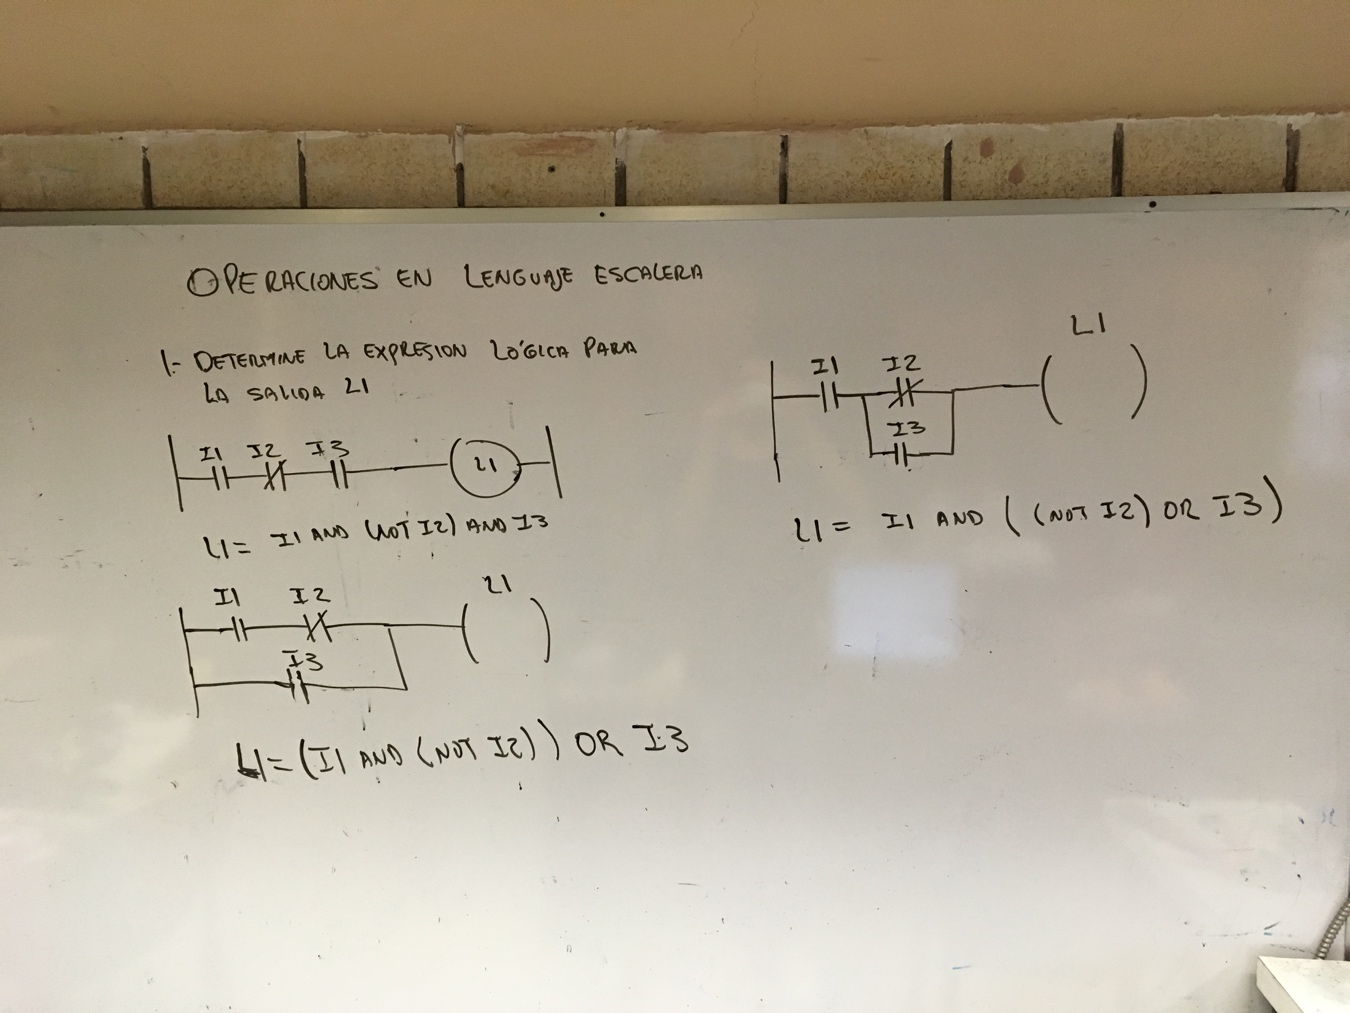 OPERACIONES EN LENGUAJE ESCALERA
1.- DETERMINE LA EXPRESION LÓGICA PARA
LA SALIDA L1
I1 I2 I3
L1
L1 = I1 AND (NOT I2) AND I3
I1 I2
L1
I3
L1 = (I1 AND (NOT I2)) OR I3
L1
I1 I2
I3
L1 = I1 AND ( (NOT I2) OR I3 )